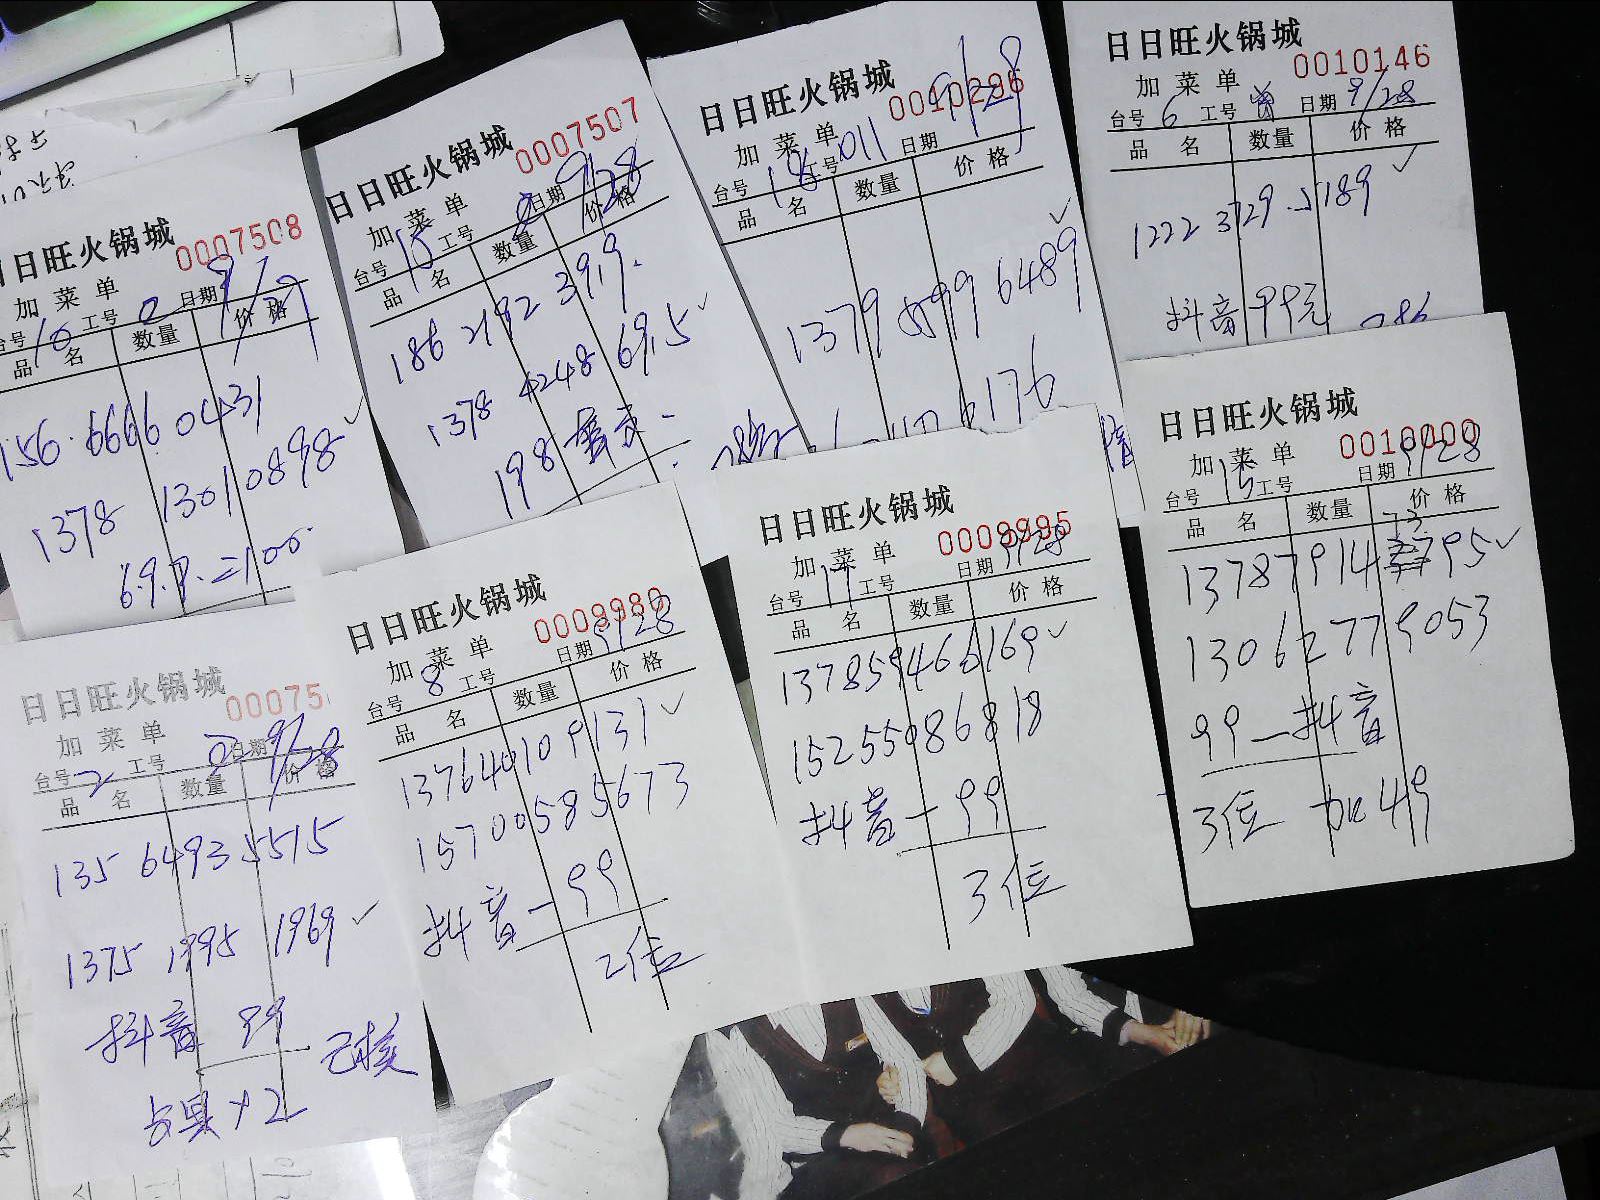 日日旺火锅城
0007508
加菜单
台号 10 工号 日期
品名 数量 价格
156.6666 0431
1378 1301 0898
69.9.=100.
日日旺火锅城
0007507
加菜单
台号 工号 日期 9/28
品名 数量 价格
186 2192 39.9.
1378 4248 69.5
198
日日旺火锅城
加菜单
台号 18 工号 011 日期 9/28
品名 数量 价格
1379 6489
6176
日日旺火锅城
0010146
加菜单
台号 6 工号 日期 9/28
品名 数量 价格
1222 3729 5189
抖音 99元
日日旺火锅城
00075
加菜单
台号 2 工号 日期 9/28
品名 数量 价格
135 6493 5515
1375 1995 1969
抖音 99
已核
占具×2
日日旺火锅城
0009980
加菜单
台号 8 工号 日期 9/28
品名 数量 价格
13764010 9131
15700585673
抖音-99
2位
日日旺火锅城
0009995
加菜单
台号 17 工号 日期 9/28
品名 数量 价格
137859466169
15255086818
抖音-99
3位
日日旺火锅城
0010000
加菜单
台号 15 工号 日期 9/28
品名 数量 价格
73
13787914 795
13062779053
99-抖音
3位 加49